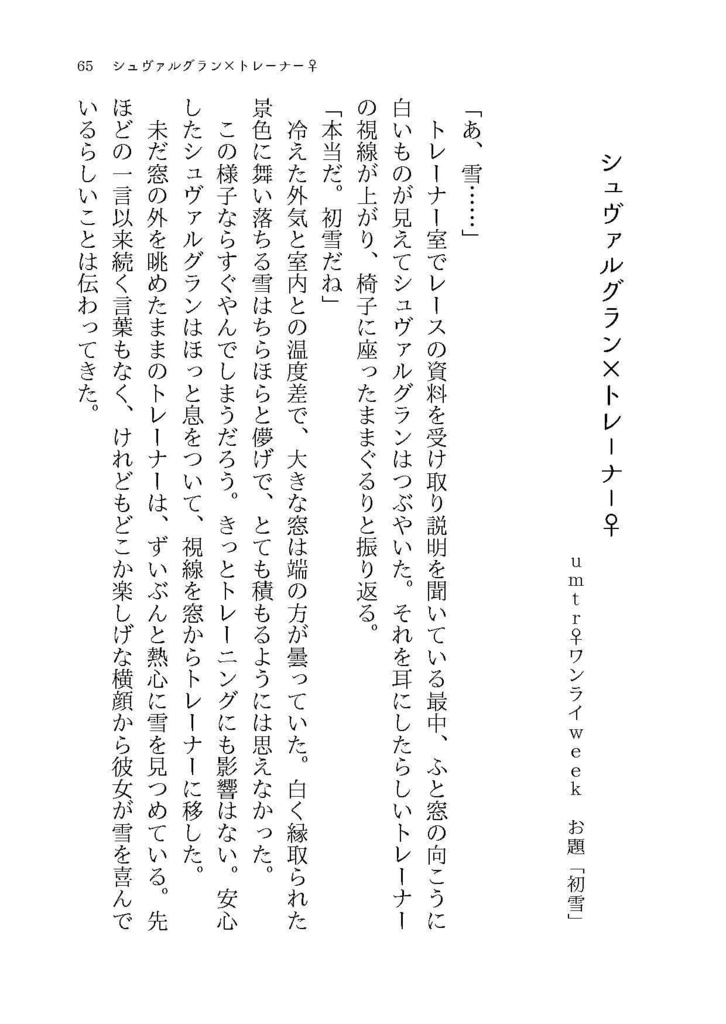 65　シュヴァルグラン×トレーナー♀
シュヴァルグラン×トレーナー♀
umtr♀ワンライweek　お題「初雪」
「あ、雪……」
　トレーナー室でレースの資料を受け取り説明を聞いている最中、ふと窓の向こうに
白いものが見えてシュヴァルグランはつぶやいた。それを耳にしたらしいトレーナー
の視線が上がり、椅子に座ったままぐるりと振り返る。
「本当だ。初雪だね」
　冷えた外気と室内との温度差で、大きな窓は端の方が曇っていた。白く縁取られた
景色に舞い落ちる雪はちらほらと儚げで、とても積もるようには思えなかった。
　この様子ならすぐやんでしまうだろう。きっとトレーニングにも影響はない。安心
したシュヴァルグランはほっと息をついて、視線を窓からトレーナーに移した。
　未だ窓の外を眺めたままのトレーナーは、ずいぶんと熱心に雪を見つめている。先
ほどの一言以来続く言葉もなく、けれどもどこか楽しげな横顔から彼女が雪を喜んで
いるらしいことは伝わってきた。